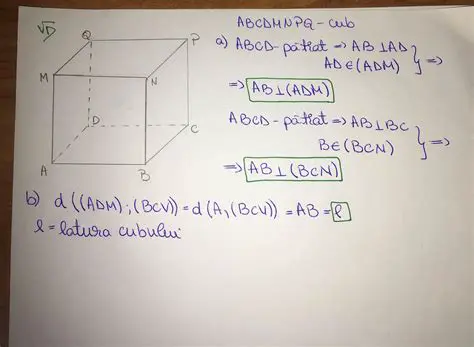 √D
ABCDMNPQ - cub
a) ABCD - pătrat => AB ⊥ AD
AD ∈ (ADM) } =>
=> AB ⊥ (ADM)
ABCD - pătrat => AB ⊥ BC
B ∈ (BCN) } =>
=> AB ⊥ (BCN)
Q
P
M
N
D
C
A
B
b) d((ADM);(BCV)) = d(A,(BCV)) = AB = l
l = latura cubului